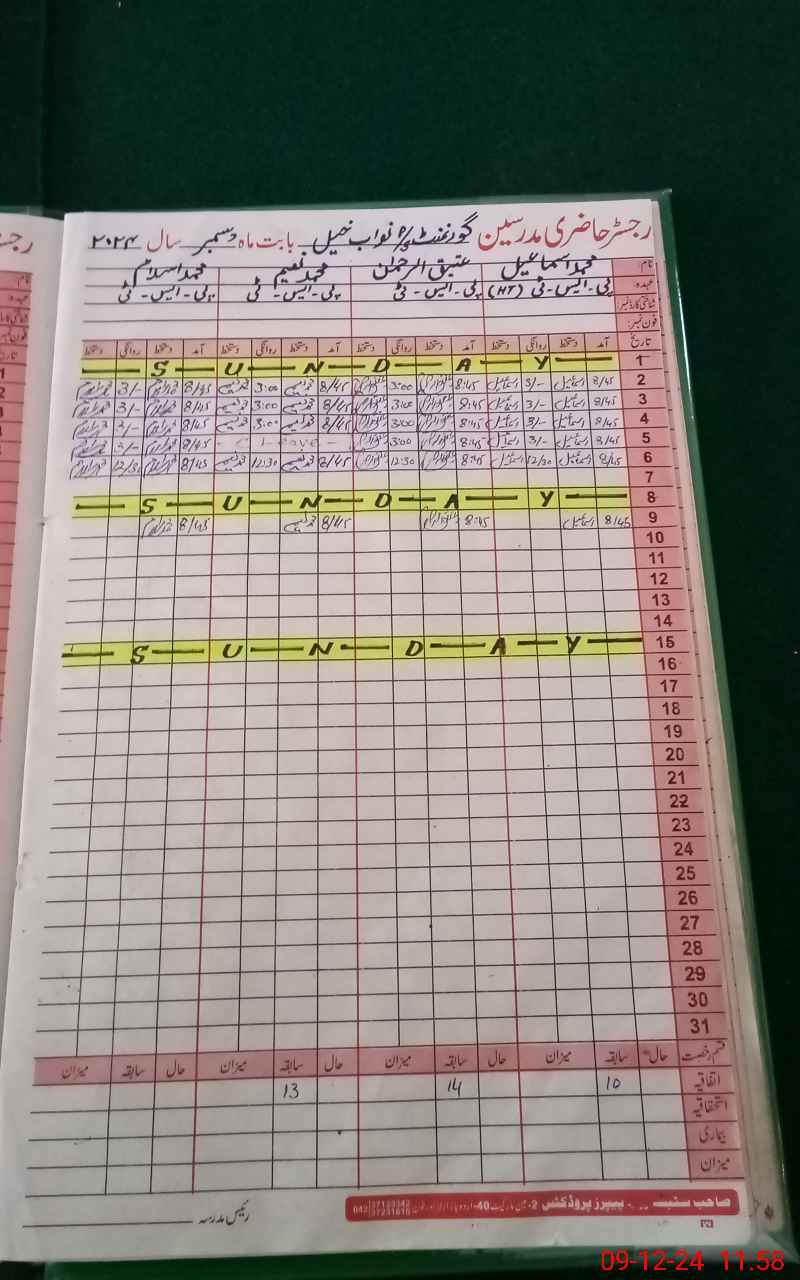 رجسٹر حاضری مدرسین گورنمنٹ پ/ہ نواب خیل بابت ماہ دسمبر سال ۲۰۲۴
نام: محمد اسماعیل عتیق الرحمان محمد نعیم محمد اسلام
عہدہ: پی-ایس-ٹی (HT) پی-ایس-ٹی پی-ایس-ٹی پی-ایس-ٹی
شناختی کارڈ نمبر:
فون نمبر:
تاریخ آمد دستخط روانگی دستخط آمد دستخط روانگی دستخط آمد دستخط روانگی دستخط آمد دستخط روانگی دستخط
1 S U N D A Y
2 8/45 اسماعیل 3/- اسماعیل 8:45 3:00 8/45 محمد نعیم 3:00 محمد نعیم 8/45 محمد اسلام 3/- محمد اسلام
3 8/45 اسماعیل 3/- اسماعیل 8:45 3:00 8/45 محمد نعیم 3:00 محمد نعیم 8/45 محمد اسلام 3/- محمد اسلام
4 8/45 اسماعیل 3/- اسماعیل 8:45 3:00 8/45 محمد نعیم 3:00 محمد نعیم 8/45 محمد اسلام 3/- محمد اسلام
5 8/45 اسماعیل 3/- اسماعیل 8:45 3:00 - C Leave - 8/45 محمد اسلام 3/- محمد اسلام
6 8/45 اسماعیل 12/30 اسماعیل 8:45 12:30 8/45 محمد نعیم 12:30 محمد نعیم 8/45 محمد اسلام 12/30 محمد اسلام
7
8 S U N D A Y
9 8/45 اسماعیل 8:45 8/45 محمد نعیم 8/45 محمد اسلام
10
11
12
13
14
15 S U N D A Y
16
17
18
19
20
21
22
23
24
25
26
27
28
29
30
31
قسم رخصت حال سابقہ میزان حال سابقہ میزان حال سابقہ میزان حال سابقہ میزان
اتفاقیہ 10 14 13
استحقاقیہ
بیماری
میزان
صاحب پیپرز پروڈکٹس 2-
رئیس مدرسہ
09-12-24 11:58